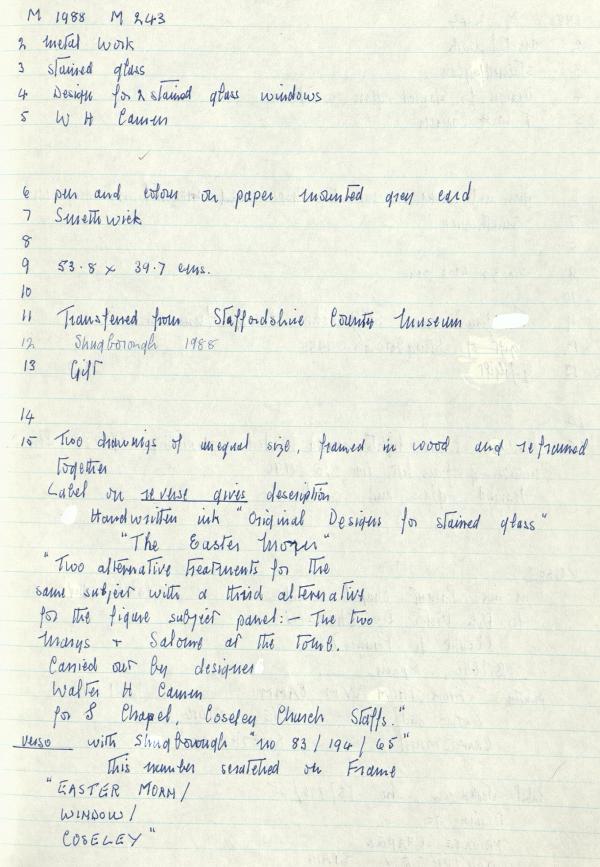 M 1988 M 243
2 metal work
3 stained glass
4 Design for 2 stained glass windows
5 W H Camm
6 pen and colour on paper mounted grey card
7 Smethwick
8
9 53.8 x 39.7 cms.
10
11 Transferred from Staffordshire County Museum
12 Shugborough 1988
13 Gift
14
15 Two drawings of unequal size, framed in wood and reframed
together
Label on reverse gives description
Handwritten ink "Original Designs for stained glass"
"The Easter Morn"
"Two alternative treatments for the
same subject with a third alternative
for the figure subject panel:- The two
Marys + Salome at the Tomb.
Carried out by designer
Walter H Camm
for S Chapel, Coseley Church Staffs."
verso with Shugborough "no 83/194/65"
this number scratched on Frame
"EASTER MORN/
WINDOW/
COSELEY"